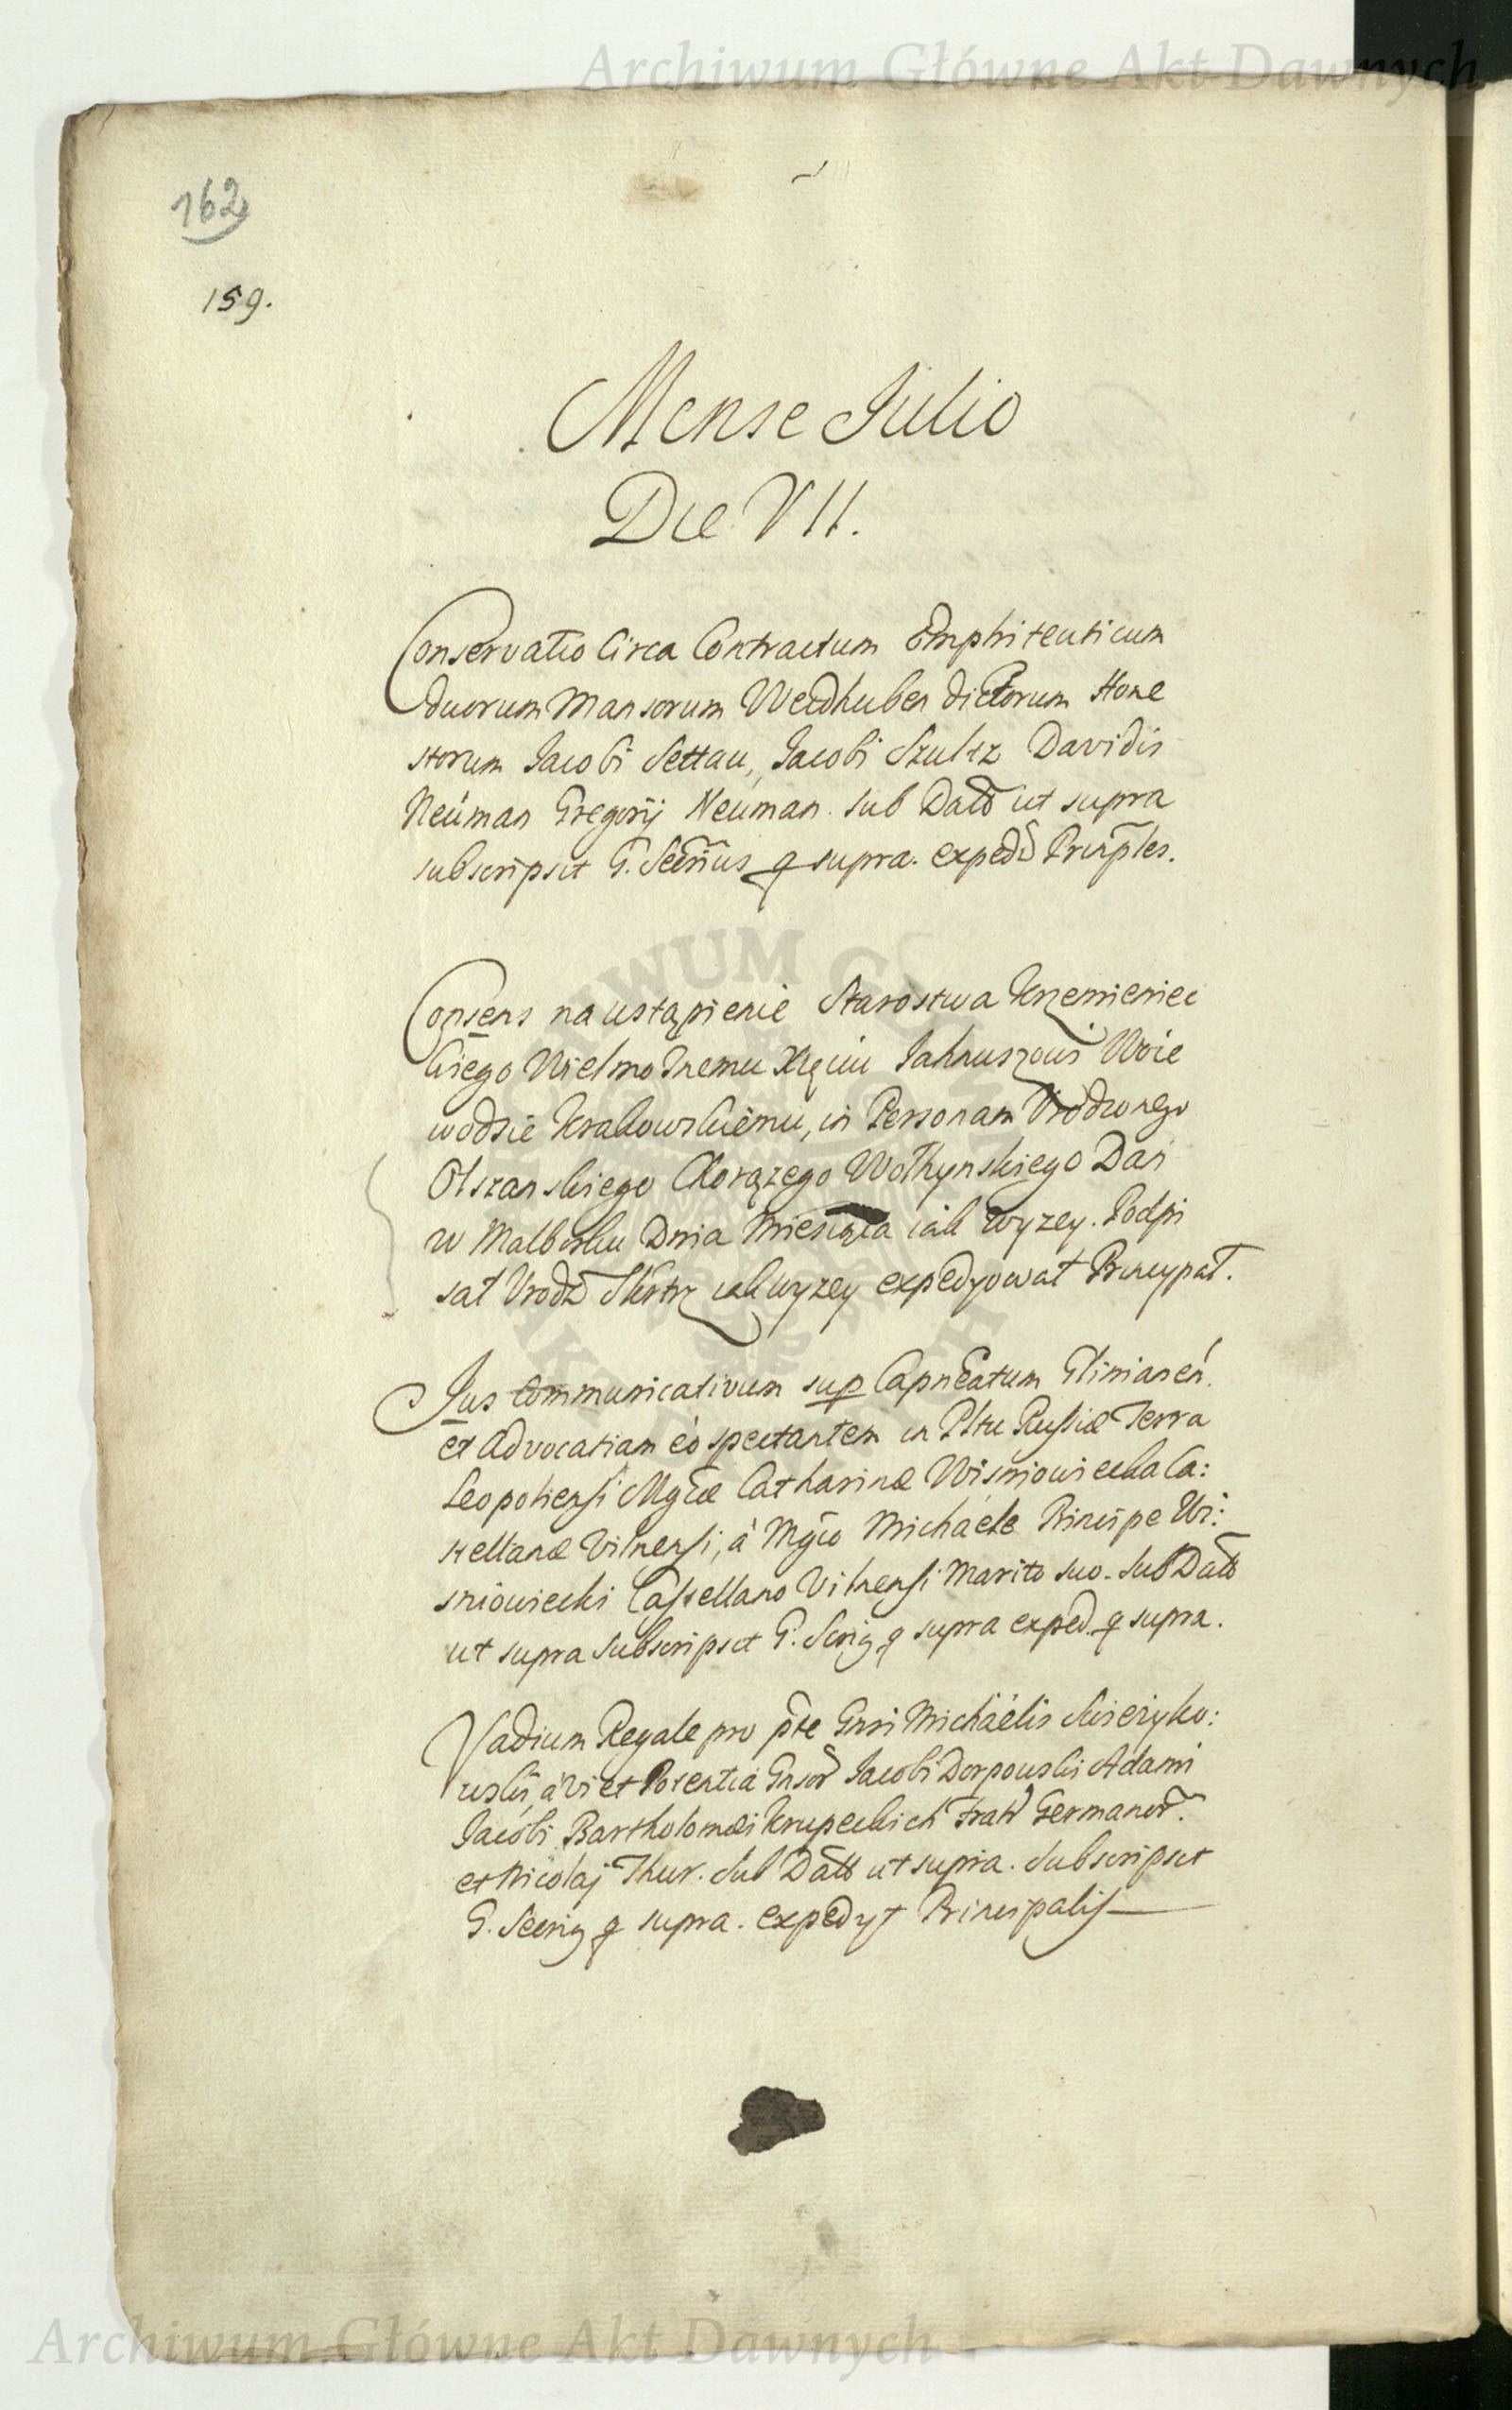 Archiwum Główne Akt Dawnych
162
159.
Mense Iulio
Die VII.
Conservatio Circa Contractum Emphiteuticum
duorum Mansorum Weedhuben dictorum Hone
storum Iacobi Settau, Iacobi Szultz Davidis
Neuman Gregorij Neuman. Sub Datt ut supra
subscripsit G. Secrius q supra. exped Prinples.
Consens na ustąpienie Starostwa Krzemieniec
kiego Wielmożnemu Xięciu Jahnuszowi Woie
wodzie Krakowskiemu, in Personam Urodzonego
Olszanskiego Chorązego Wołhynskiego Dan
w Malborku Dnia Miesiąca iak wyzey. Podpi
sał Urodz Skrtrz iak wyzey expedyował Pryncypał.
Jus Communicativum sup Capneatum Glinianen.
et Advocatiam eo spectantem in Pltu Russiæ Terra
Leopoliensi Mgcæ Catharinæ Wisniowiecka Ca:
stellanæ Vilnensi, à Mgco Michaele Principe Wi:
sniowiecki Castellano Vilnensi Marito suo. Sub Datt
ut supra Subscripsit G. Scrig q supra exped. q supra.
Vadium Regale pro pte Gnsi Michäelis
à vi et Potentia Gnsor Iacobi Dorpowski Adami
Jacobi Bartholomæi Krupeckich Fratr Germanor.
et Nicolaj Thur. Sub Datt ut supra. Subscripsit
G. Secrig q supra. expedyt Principalis
Archiwum Główne Akt Dawnych